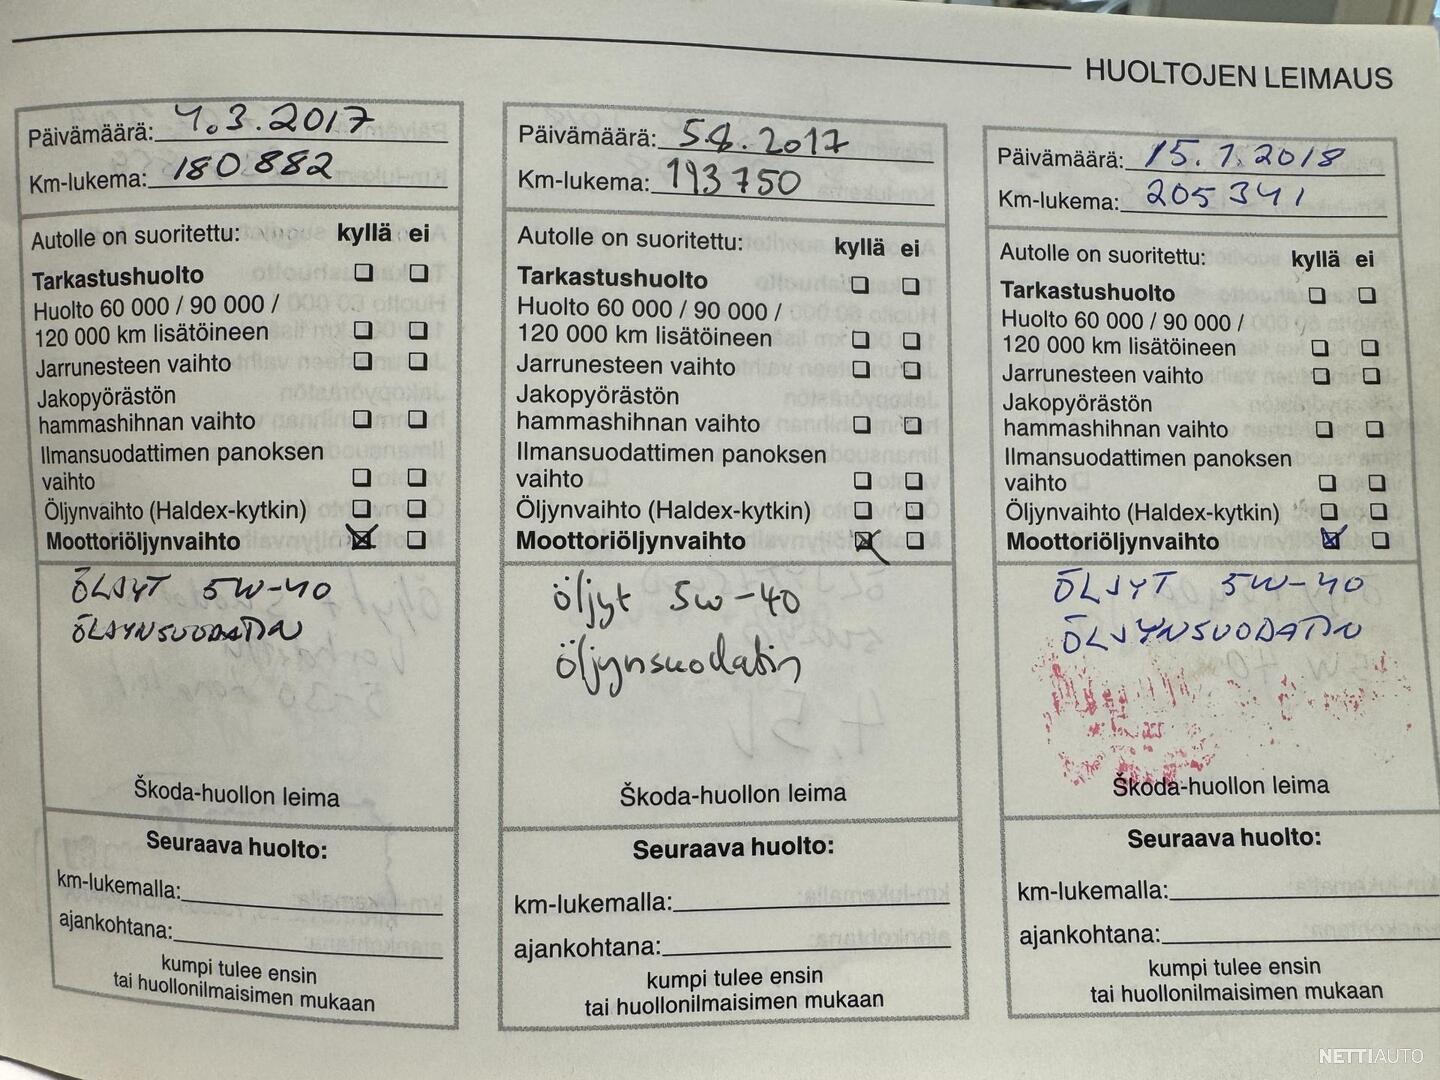 HUOLTOJEN LEIMAUS
Päivämäärä: 4.3.2017
Km-lukema: 180.882
Autolle on suoritettu: kyllä ei
Tarkastushuolto
Huolto 60 000 / 90 000 /
120 000 km lisätöineen
Jarrunesteen vaihto
Jakopyörästön
hammashihnan vaihto
Ilmansuodattimen panoksen
vaihto
Öljynvaihto (Haldex-kytkin)
Moottoriöljynvaihto
ÖLJYT 5W-40
ÖLJYNSUODATIN
Škoda-huollon leima
Seuraava huolto:
km-lukemalla:
ajankohtana:
kumpi tulee ensin
tai huollonilmaisimen mukaan
Päivämäärä: 5.8.2017
Km-lukema: 193750
Autolle on suoritettu: kyllä ei
Tarkastushuolto
Huolto 60 000 / 90 000 /
120 000 km lisätöineen
Jarrunesteen vaihto
Jakopyörästön
hammashihnan vaihto
Ilmansuodattimen panoksen
vaihto
Öljynvaihto (Haldex-kytkin)
Moottoriöljynvaihto
öljyt 5w-40
öljynsuodatin
Škoda-huollon leima
Seuraava huolto:
km-lukemalla:
ajankohtana:
kumpi tulee ensin
tai huollonilmaisimen mukaan
Päivämäärä: 15.1.2018
Km-lukema: 205341
Autolle on suoritettu: kyllä ei
Tarkastushuolto
Huolto 60 000 / 90 000 /
120 000 km lisätöineen
Jarrunesteen vaihto
Jakopyörästön
hammashihnan vaihto
Ilmansuodattimen panoksen
vaihto
Öljynvaihto (Haldex-kytkin)
Moottoriöljynvaihto
ÖLJYT 5W-40
ÖLJYNSUODATIN
Škoda-huollon leima
Seuraava huolto:
km-lukemalla:
ajankohtana:
kumpi tulee ensin
tai huollonilmaisimen mukaan
NETTIAUTO